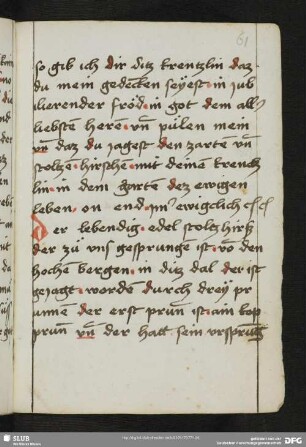 61
so gib ich dir ditz krentzlin daz
du mein gedencken seyest in jub
ilierender fröd in got dem all
liebsten heren vn̄ pülen mein
vn̄ daz du jagest den zarte vn̄
stoltzen hirschen mit deinem krentz
lin in dem garten dez ewigen
leben on end ymer ewigclich
Der lebendig edel stoltz hirß
der zü vns gesprungen ist vō den
hochē bergen in ditz dal der ist
gejagt worden durch drey pr
unnen der erst prun ist am kop
prun vn̄ der hatt sein vrsprung
SLUB